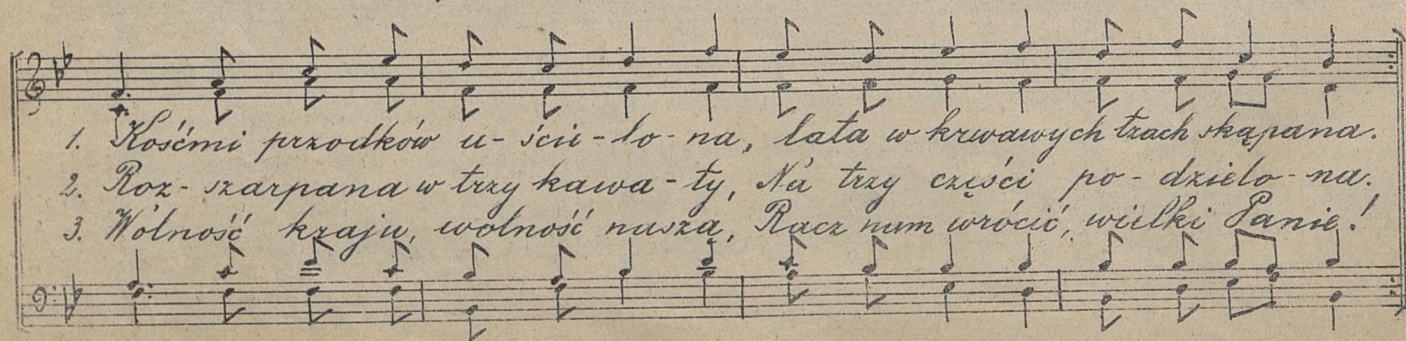 1. Kośćmi przodków u-ście-lo-na, lata w krwawych łzach skąpana.
2. Roz-szarpana w trzy kawa-ły, Na trzy części po-dzielo-na.
3. Wolność kraju, wolność nasza, Racz nam wrócić, wielki Panie!